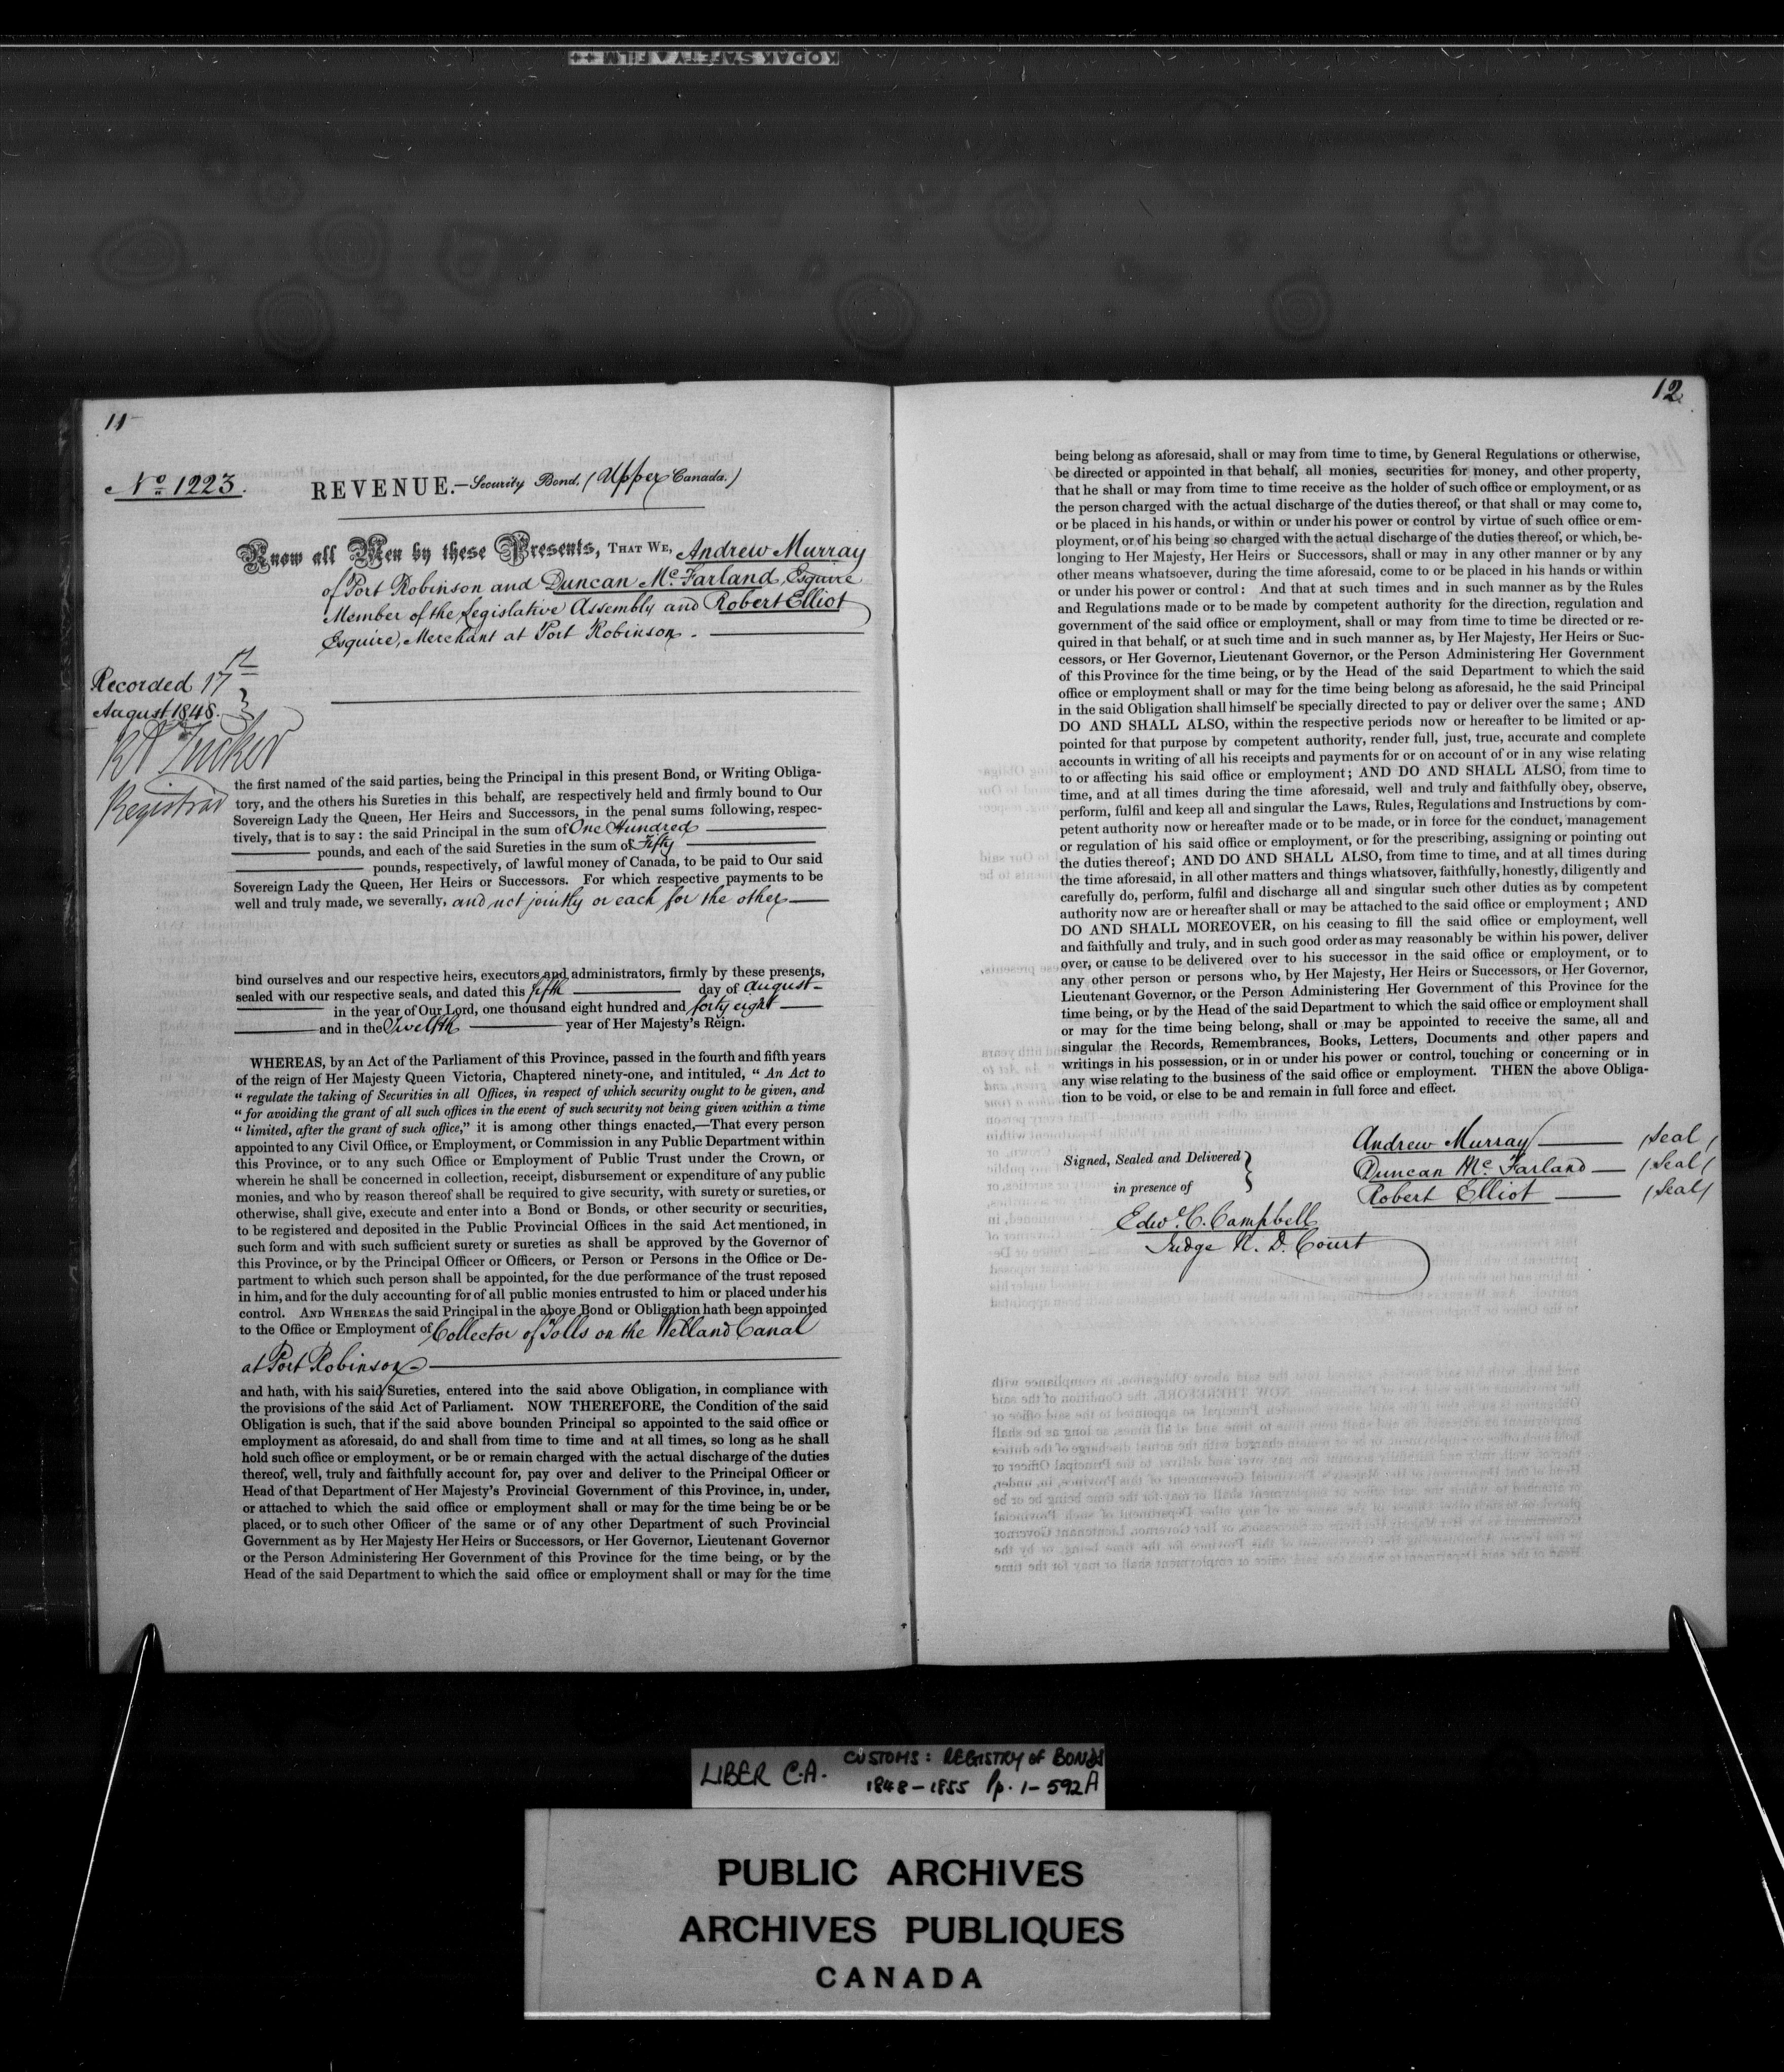 KODAK SAFETY FILM ++
11
No 1223.
REVENUE.—Security Bond, (Upper Canada.)
Know all Men by these Presents, THAT WE, Andrew Murray
of Port Robinson and Duncan McFarland, Esquire
Member of the Legislative Assembly and Robert Elliot
Esquire, Merchant at Port Robinson.
Recorded 17th
August 1848.
Registrar
the first named of the said parties, being the Principal in this present Bond, or Writing Obliga-
tory, and the others his Sureties in this behalf, are respectively held and firmly bound to Our
Sovereign Lady the Queen, Her Heirs and Successors, in the penal sums following, respec-
tively, that is to say: the said Principal in the sum of One Hundred
pounds, and each of the said Sureties in the sum of Fifty
pounds, respectively, of lawful money of Canada, to be paid to Our said
Sovereign Lady the Queen, Her Heirs or Successors. For which respective payments to be
well and truly made, we severally, and not jointly or each for the other
bind ourselves and our respective heirs, executors and administrators, firmly by these presents,
sealed with our respective seals, and dated this fifth day of August
in the year of Our Lord, one thousand eight hundred and forty eight
and in the Twelfth year of Her Majesty's Reign.
WHEREAS, by an Act of the Parliament of this Province, passed in the fourth and fifth years
of the reign of Her Majesty Queen Victoria, Chaptered ninety-one, and intituled, " An Act to
" regulate the taking of Securities in all Offices, in respect of which security ought to be given, and
" for avoiding the grant of all such offices in the event of such security not being given within a time
" limited, after the grant of such office," it is among other things enacted,—That every person
appointed to any Civil Office, or Employment, or Commission in any Public Department within
this Province, or to any such Office or Employment of Public Trust under the Crown, or
wherein he shall be concerned in collection, receipt, disbursement or expenditure of any public
monies, and who by reason thereof shall be required to give security, with surety or sureties, or
otherwise, shall give, execute and enter into a Bond or Bonds, or other security or securities,
to be registered and deposited in the Public Provincial Offices in the said Act mentioned, in
such form and with such sufficient surety or sureties as shall be approved by the Governor of
this Province, or by the Principal Officer or Officers, or Person or Persons in the Office or De-
partment to which such person shall be appointed, for the due performance of the trust reposed
in him, and for the duly accounting for of all public monies entrusted to him or placed under his
control. AND WHEREAS the said Principal in the above Bond or Obligation hath been appointed
to the Office or Employment of Collector of Tolls on the Welland Canal
at Port Robinson
and hath, with his said Sureties, entered into the said above Obligation, in compliance with
the provisions of the said Act of Parliament. NOW THEREFORE, the Condition of the said
Obligation is such, that if the said above bounden Principal so appointed to the said office or
employment as aforesaid, do and shall from time to time and at all times, so long as he shall
hold such office or employment, or be or remain charged with the actual discharge of the duties
thereof, well, truly and faithfully account for, pay over and deliver to the Principal Officer or
Head of that Department of Her Majesty's Provincial Government of this Province, in, under,
or attached to which the said office or employment shall or may for the time being be or be
placed, or to such other Officer of the same or of any other Department of such Provincial
Government as by Her Majesty Her Heirs or Successors, or Her Governor, Lieutenant Governor
or the Person Administering Her Government of this Province for the time being, or by the
Head of the said Department to which the said office or employment shall or may for the time
12
being belong as aforesaid, shall or may from time to time, by General Regulations or otherwise,
be directed or appointed in that behalf, all monies, securities for money, and other property,
that he shall or may from time to time receive as the holder of such office or employment, or as
the person charged with the actual discharge of the duties thereof, or that shall or may come to,
or be placed in his hands, or within or under his power or control by virtue of such office or em-
ployment, or of his being so charged with the actual discharge of the duties thereof, or which, be-
longing to Her Majesty, Her Heirs or Successors, shall or may in any other manner or by any
other means whatsoever, during the time aforesaid, come to or be placed in his hands or within
or under his power or control: And that at such times and in such manner as by the Rules
and Regulations made or to be made by competent authority for the direction, regulation and
government of the said office or employment, shall or may from time to time be directed or re-
quired in that behalf, or at such time and in such manner as, by Her Majesty, Her Heirs or Suc-
cessors, or Her Governor, Lieutenant Governor, or the Person Administering Her Government
of this Province for the time being, or by the Head of the said Department to which the said
office or employment shall or may for the time being belong as aforesaid, he the said Principal
in the said Obligation shall himself be specially directed to pay or deliver over the same; AND
DO AND SHALL ALSO, within the respective periods now or hereafter to be limited or ap-
pointed for that purpose by competent authority, render full, just, true, accurate and complete
accounts in writing of all his receipts and payments for or on account of or in any wise relating
to or affecting his said office or employment; AND DO AND SHALL ALSO, from time to
time, and at all times during the time aforesaid, well and truly and faithfully obey, observe,
perform, fulfil and keep all and singular the Laws, Rules, Regulations and Instructions by com-
petent authority now or hereafter made or to be made, or in force for the conduct, management
or regulation of his said office or employment, or for the prescribing, assigning or pointing out
the duties thereof; AND DO AND SHALL ALSO, from time to time, and at all times during
the time aforesaid, in all other matters and things whatsover, faithfully, honestly, diligently and
carefully do, perform, fulfil and discharge all and singular such other duties as by competent
authority now are or hereafter shall or may be attached to the said office or employment; AND
DO AND SHALL MOREOVER, on his ceasing to fill the said office or employment, well
and faithfully and truly, and in such good order as may reasonably be within his power, deliver
over, or cause to be delivered over to his successor in the said office or employment, or to
any other person or persons who, by Her Majesty, Her Heirs or Successors, or Her Governor,
Lieutenant Governor, or the Person Administering Her Government of this Province for the
time being, or by the Head of the said Department to which the said office or employment shall
or may for the time being belong, shall or may be appointed to receive the same, all and
singular the Records, Remembrances, Books, Letters, Documents and other papers and
writings in his possession, or in or under his power or control, touching or concerning or in
any wise relating to the business of the said office or employment. THEN the above Obliga-
tion to be void, or else to be and remain in full force and effect.
Signed, Sealed and Delivered
in presence of
Andrew Murray (Seal)
Duncan McFarland (Seal)
Robert Elliot (Seal)
Edwd. C. Campbell
Judge N. D. Court
LIBER C.A. CUSTOMS: REGISTRY OF BONDS
1848-1855 Pp. 1-592A
PUBLIC ARCHIVES
ARCHIVES PUBLIQUES
CANADA